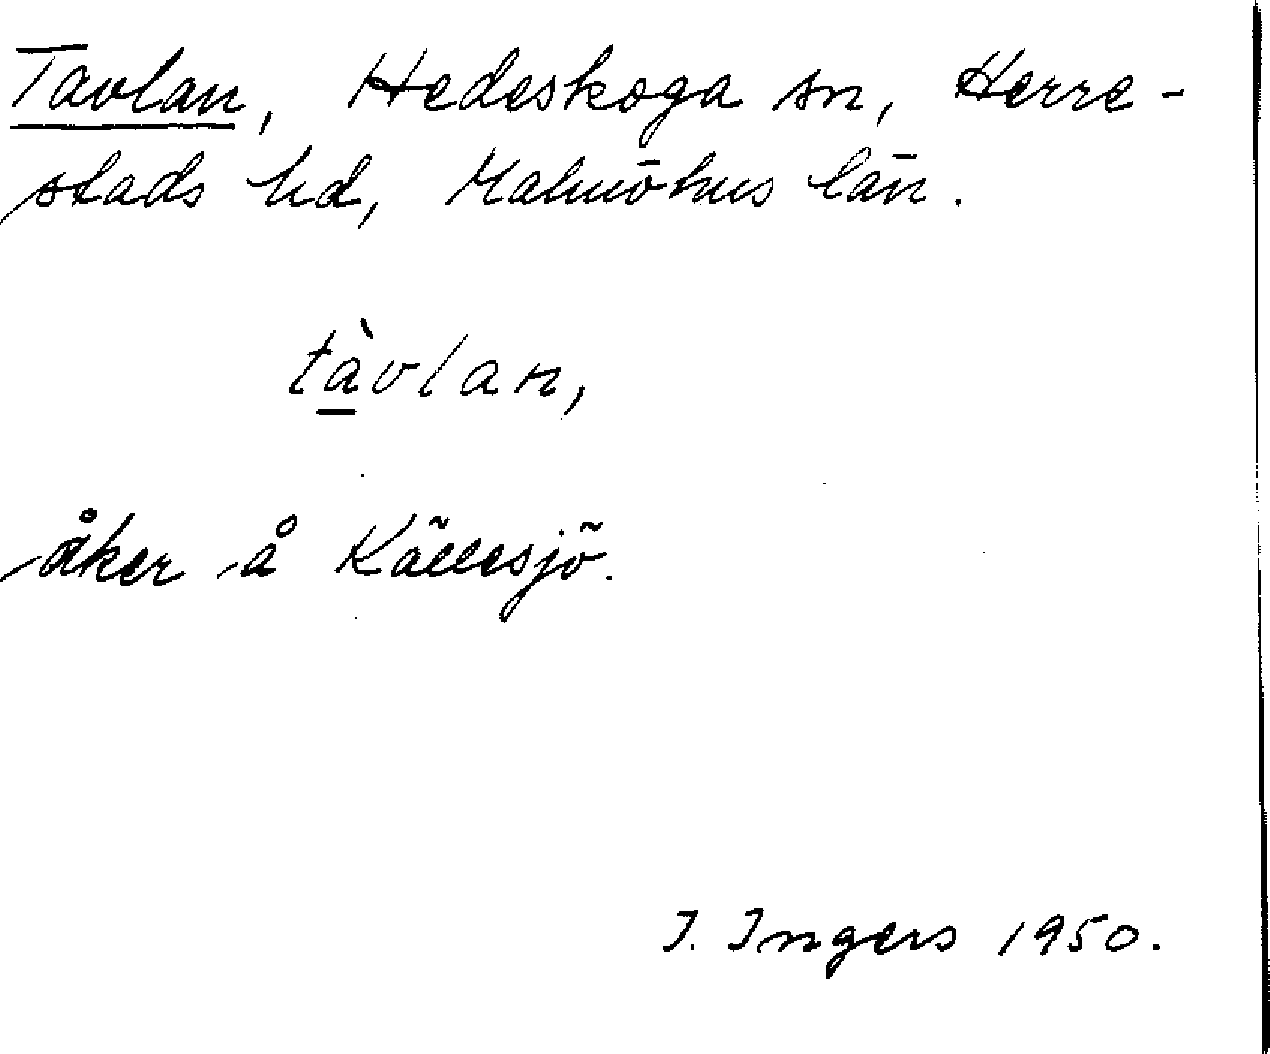 Tavlan, Hedeskoga sn, Herre-
stads hd, Malmöhus län.
tàvlan,
åker å Källesjö.
I. Ingers 1950.